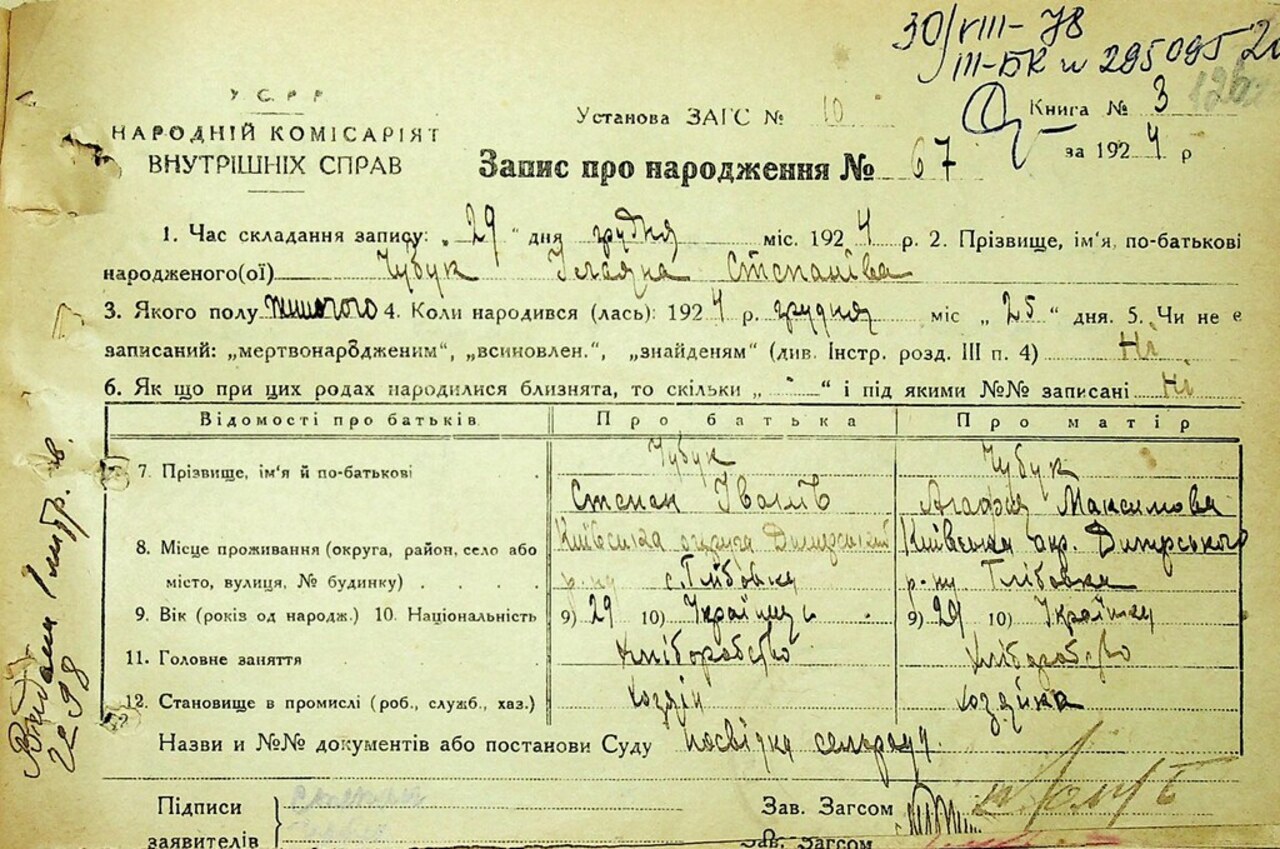 30/VIII-78
III-БК № 295095
У С Р Р
НАРОДНІЙ КОМІСАРІЯТ
ВНУТРІШНІХ СПРАВ
Установа ЗАГС № 10
Книга № 3
за 1924 р
Запис про народження № 67
1. Час складання запису: „29“ дня грудня міс. 1924 р. 2. Прізвище, ім'я, по-батькові
народженого(ої) Чубук Степанівa
3. Якого полу жіночого 4. Коли народився (лась): 1924 р. грудня міс „25“ дня. 5. Чи не є
записаний: „мертвонародженим“, „всиновлен.“, „знайденям“ (див. Інстр. розд. III п. 4) Ні
6. Як що при цих родах народилися близнята, то скільки „-“ і під якими №№ записані Ні
Відомості про батьків Про батька Про матір
7. Прізвище, ім'я й по-батькові Чубук Чубук
Степан Іванів Агафія Максимова
8. Місце проживання (округа, район, село або Київська округа Димерський Київська окр. Димерського
місто, вулиця, № будинку) р-ну с. Глібовка р-ну Глібовка
9. Вік (років од народж.) 10. Національність 9) 29 10) Українець 9) 29 10) Українка
11. Головне заняття Хліборобство Хліборобство
12. Становище в промислі (роб., служб., хаз.) хозяїн хозяйка
Назви и №№ документів або постанови Суду посвідка сельради
Підписи
заявителів
Зав. Загсом
Зав. Загсом